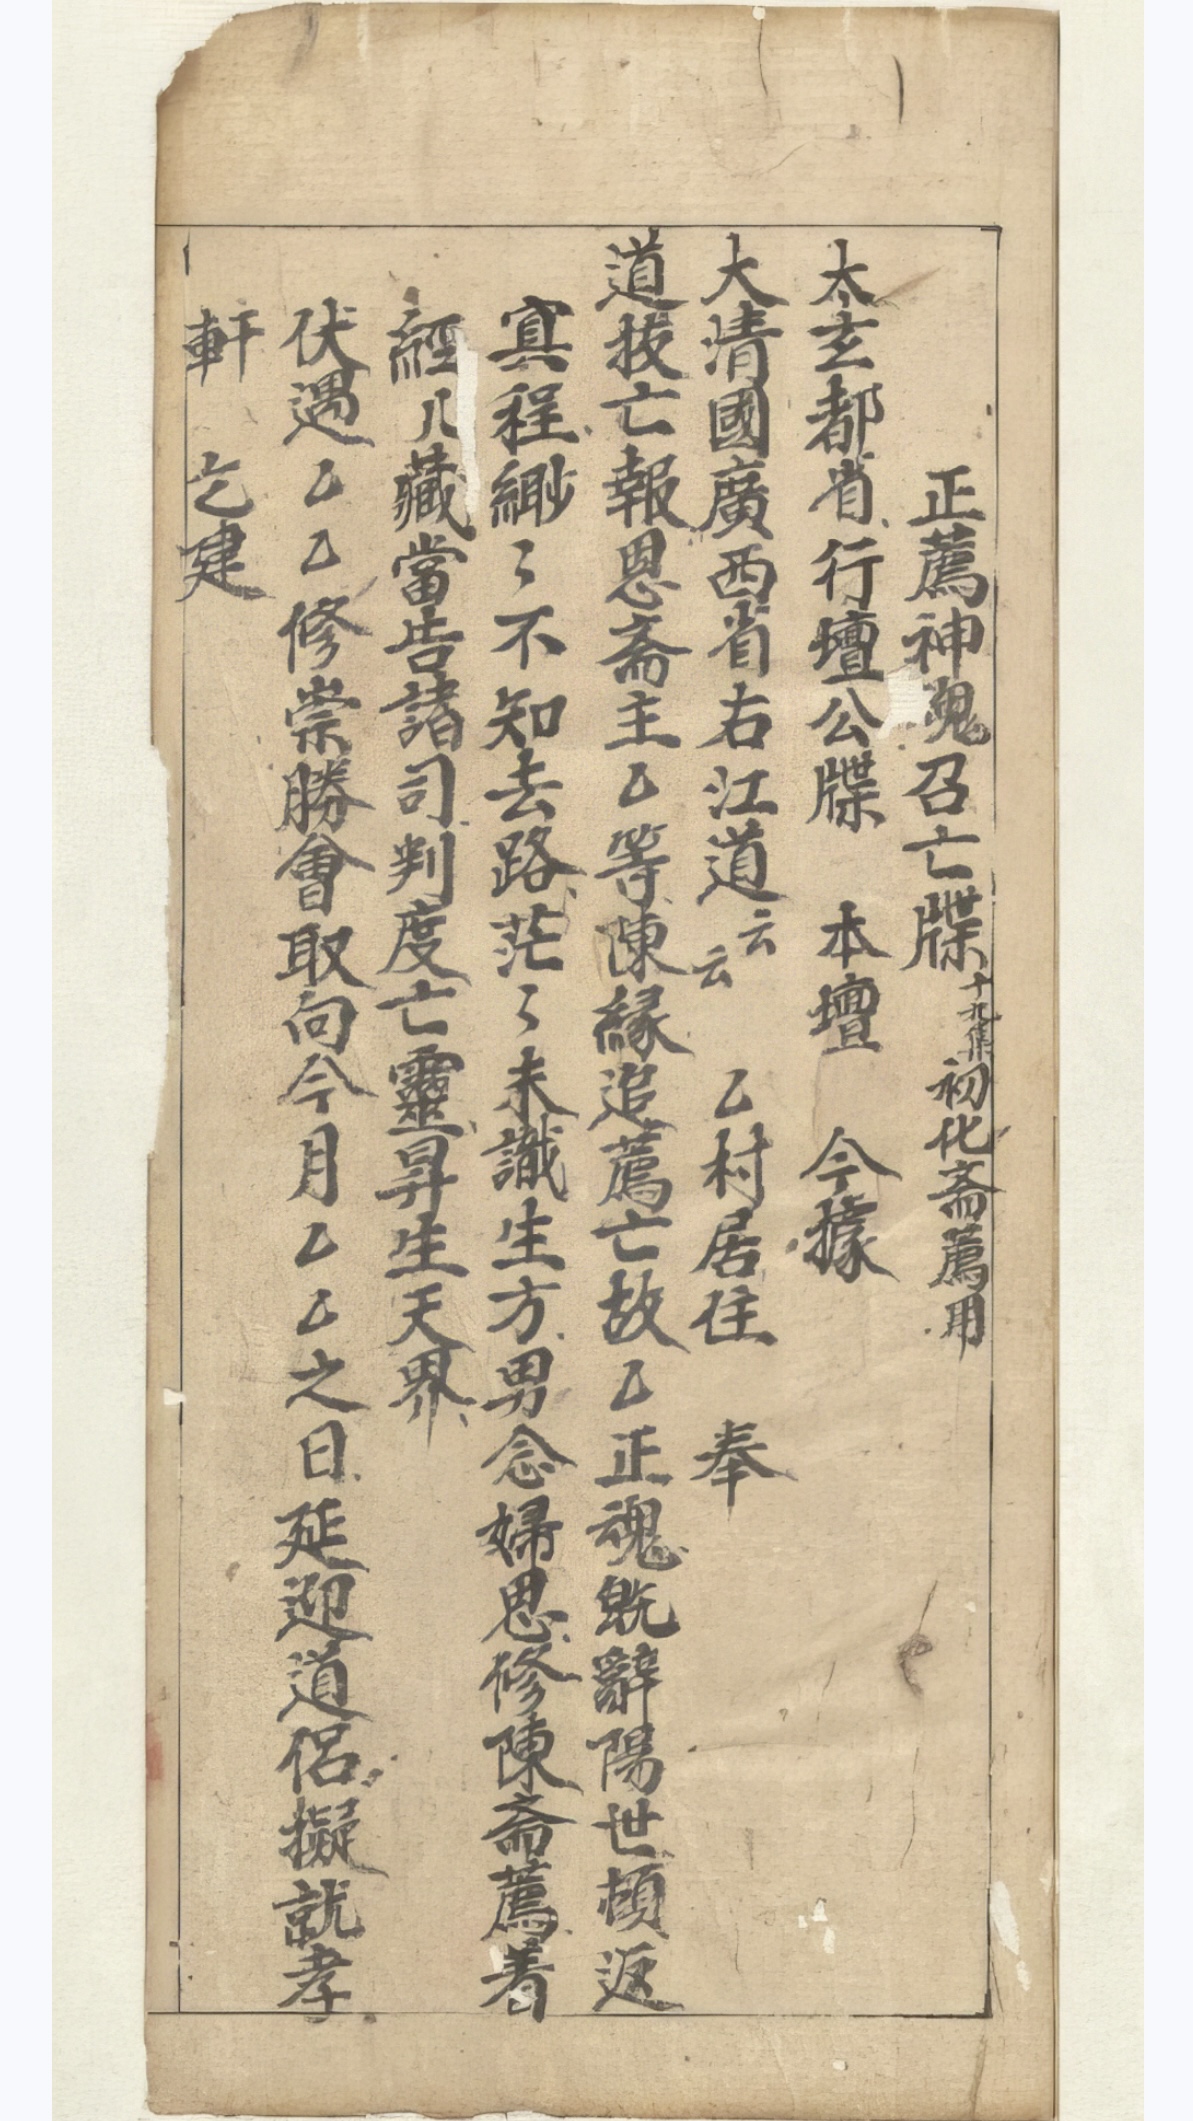 正薦神魂召亡牒十九集初化斋薦用
太玄都省行壇公牒　本壇　今據
大清國廣西省右江道云云　乙村居住　奉
道拔亡報恩斋主乙等陳緣追薦亡故乙正魂既辭陽世頓返
寘程緲〻不知去路茫〻未識生方男念婦思修陳斋薦着
經八藏當告諸司判度亡靈昇生天界
伏遇乙乙修崇勝會取向今月乙乙之日延迎道侶擬就孝
軒乞建